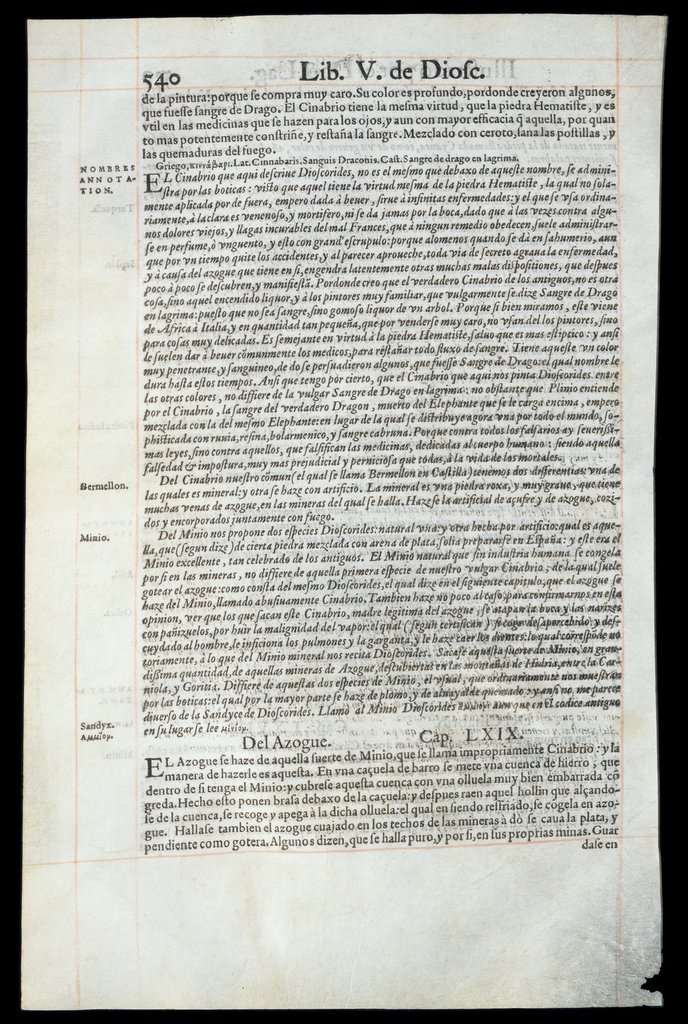 540 Lib. V. de Diosc.
de la pintura: porque se compra muy caro. Su color es profundo, pordonde creyeron algunos,
que fuesse sangre de Drago. El Cinabrio tiene la mesma virtud, que la piedra Hematiste, y es
vtil en las medicinas que se hazen para los ojos, y aun con mayor efficacia q̃ aquella, por quan
to mas potentemente constriñe, y restaña la sangre. Mezclado con ceroto, sana las postillas, y
las quemaduras del fuego.
Griego, κιννάβαρι. Lat. Cinnabaris. Sanguis Draconis. Cast. Sangre de drago en lagrima.
NOMBRES
ANNOTA-
TION.
EL Cinabrio que aqui descriue Dioscorides, no es el mesmo que debaxo de aqueste nombre, se admini-
stra por las boticas: visto que aquel tiene la virtud mesma de la piedra Hematiste, la qual no sola-
mente aplicada por de fuera, empero dada à beuer, sirue à infinitas enfermedades: y el que se vsa ordina-
riamente, à la clara es venenoso, y mortifero, ni se da jamas por la boca, dado que à las vezes contra algu-
nos dolores viejos, y llagas incurables del mal Frances, que à ningun remedio obedecen, suele administrar-
se en perfume, ò vnguento, y esto con grand' escrupulo: porque alomenos quando se dà en sahumerio, aun
que por vn tiempo quite los accidentes, y al parecer aproueche, toda via de secreto agraua la enfermedad,
y à causa del azogue que tiene en si, engendra latentemente otras muchas malas dispositiones, que despues
poco à poco se descubren, y manifiestã. Pordonde creo que el verdadero Cinabrio de los antiguos, no es otra
cosa, sino aquel encendido liquor, y à los pintores muy familiar, que vulgarmente se dize Sangre de Drago
en lagrima: puesto que no sea sangre, sino gomoso liquor de vn arbol. Porque si bien miramos, este viene
de Africa à Italia, y en quantidad tan pequeña, que por venderse muy caro, no vsan del los pintores, sino
para cosas muy delicadas. Es semejante en virtud à la piedra Hematiste, saluo que es mas estiptico: y ansi
le suelen dar à beuer cõmunmente los medicos, para restañar todo fluxo de sangre. Tiene aqueste vn color
muy penetrante, y sanguineo, de do se persuadieron algunos, que fuesse Sangre de Drago: el qual nombre le
dura hasta estos tiempos. Ansi que tengo por cierto, que el Cinabrio que aqui nos pinta Dioscorides entre
las otras colores, no differe de la vulgar Sangre de Drago en lagrima: no obstante que Plinio entiende
por el Cinabrio, la sangre del verdadero Dragon, muerto del Elephante que se le carga encima, empero
mezclada con la del mesmo Elephante: en lugar de la qual se distribuye agora vna por todo el mundo, so-
phisticada con ruuia, resina, bolarmenico, y sangre cabruna. Porque contra todos los falsarios ay seuerissi-
mas leyes, sino contra aquellos, que falsifican las medicinas, dedicadas al cuerpo humano: siendo aquella
falsedad & impostura, muy mas prejudicial y perniciosa que todas, à la vida de los mortales.
Bermellon.
Del Cinabrio nuestro cõmun (el qual se llama Bermellon en Castilla) tenemos dos differentias: vna de
las quales es mineral: y otra se haze con artificio. La mineral es vna piedra roxa, y muy graue, que tiene
muchas venas de azogue, en las mineras del qual se halla. Hazese la artificial de açufre, y de azogue, cozi-
dos y encorporados juntamente con fuego.
Minio.
Del Minio nos propone dos especies Dioscorides: natural vna: y otra hecha por artificio: qual es aque-
lla, que (segun dize) de cierta piedra mezclada con arena de plata, solia prepararse en España: y este era el
Minio excellente, tan celebrado de los antiguos. El Minio natural que sin industria humana se congela
por si en las mineras, no differe de aquella primera especie de nuestro vulgar Cinabrio, de la qual suele
gotear el azogue: como consta del mesmo Dioscorides, el qual dize en el siguiente capitulo, que el azogue se
haze del Minio, llamado abusiuamente Cinabrio. Tambien haze no poco al caso, para confirmarnos en esta
opinion, ver que los que sacan este Cinabrio, madre legitima del azogue, se atapan la boca y las narizes
con pañizuelos, por huir la malignidad del vapor: el qual (segun certifican) si coge desapercebido y des-
cuydado al hombre, le inficiona los pulmones y la garganta, y le haze caer los dientes: lo qual corresponde no
toriamente, à lo que del Minio mineral nos recita Dioscorides. Sacase aquesta suerte de Minio, en gran-
dissima quantidad, de aquellas mineras de Azogue, descubiertas en las montañas de Hidria, entre la Car-
niola, y Goritia. Differe de aquestas dos especies de Minio, el vsual, que ordinariamente nos muestran
por las boticas: el qual por la mayor parte se haze de plomo, y de aluayalde quemado: y ansi no me parece
diuerso de la Sandyce de Dioscorides. Llamò al Minio Dioscorides ἄμμιον: aun que en el codice antiguo
en su lugar se lee μίνιον.
Sandyx.
Αμμιον.
Del Azogue. Cap. LXIX.
EL Azogue se haze de aquella suerte de Minio, que se llama impropriamente Cinabrio: y la
manera de hazerle es aquesta. En vna caçuela de barro se mete vna cuenca de hierro, que
dentro de si tenga el Minio: y cubrese aquesta cuenca con vna olluela muy bien embarrada cõ
greda. Hecho esto ponen brasa debaxo de la caçuela: y despues raen aquel hollin que alçando-
se de la cuenca, se recoge y apega à la dicha olluela: el qual en siendo resfriado, se cõgela en azo-
gue. Hallase tambien el azogue cuajado en los techos de las mineras à dò se caua la plata, y
pendiente como gotera. Algunos dizen, que se halla puro, y por si, en sus proprias minas. Guar
dase en